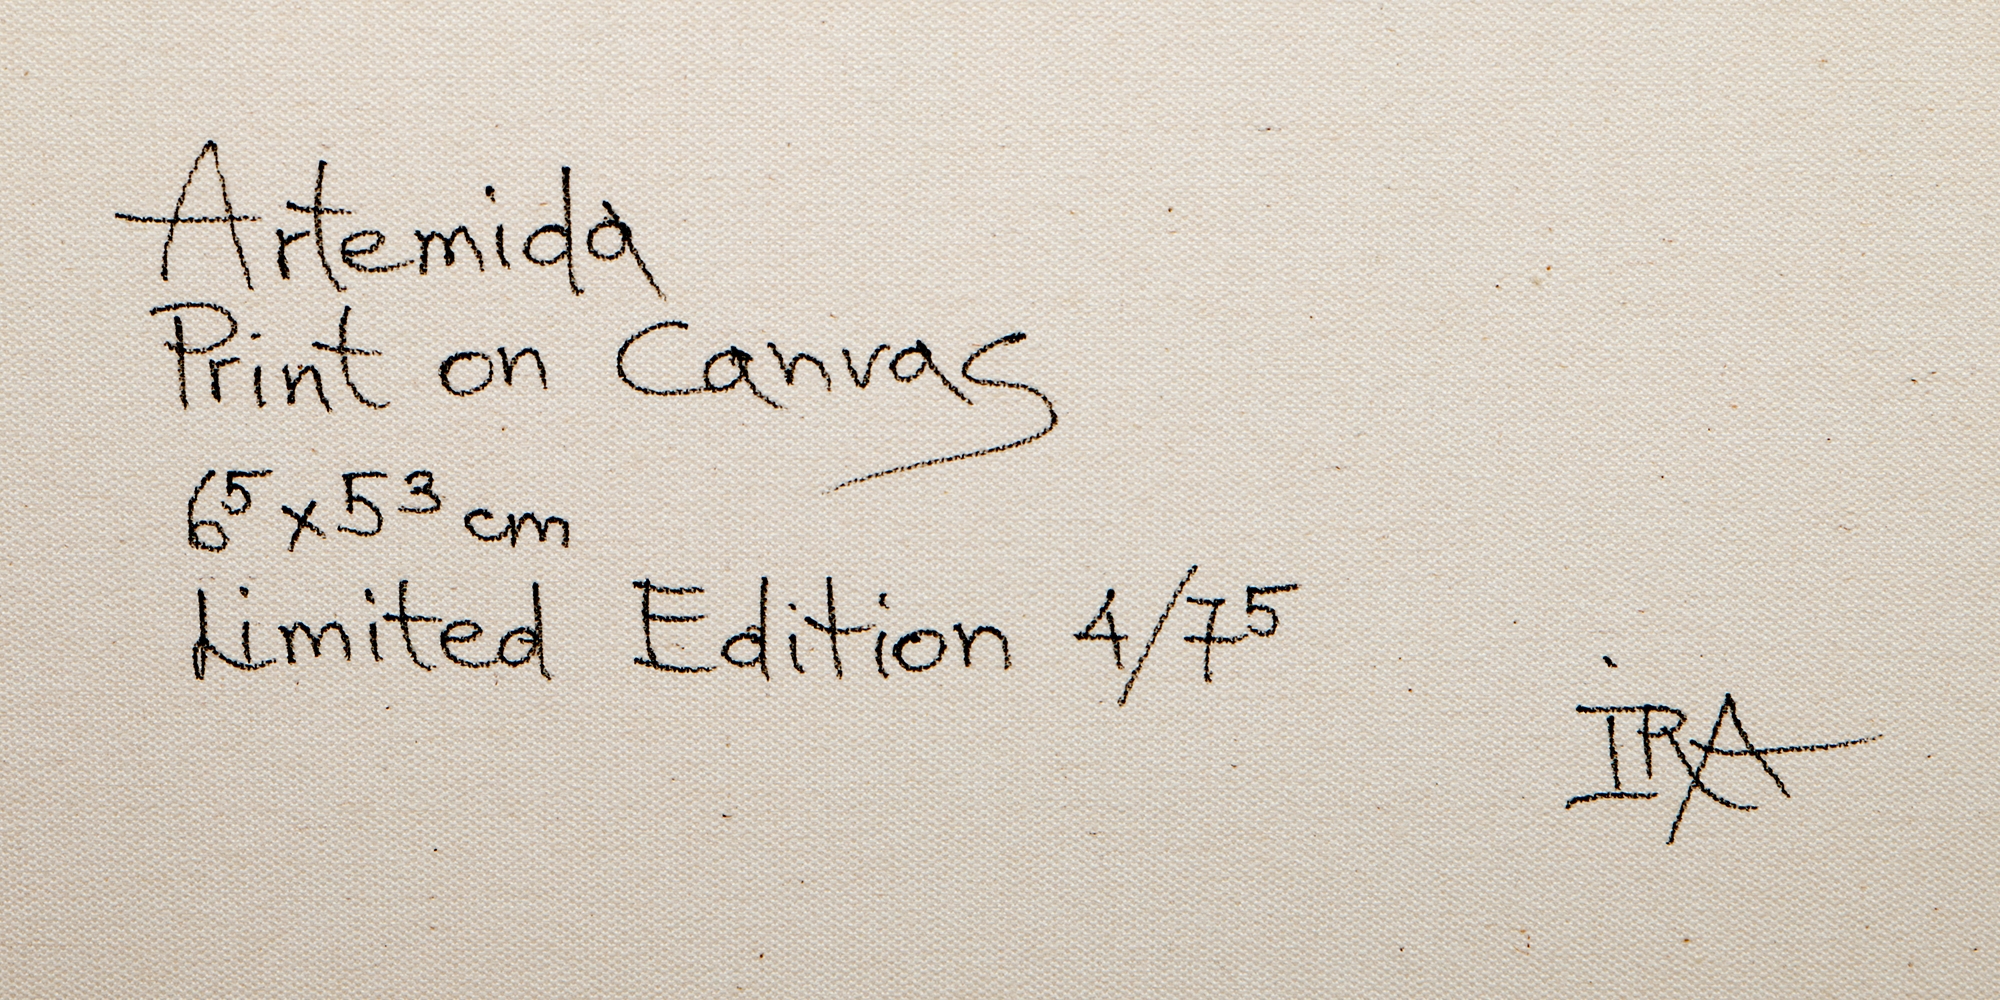 Artemida
Print on Canvas
65 x 53 cm
Limited Edition 4/75
IRA